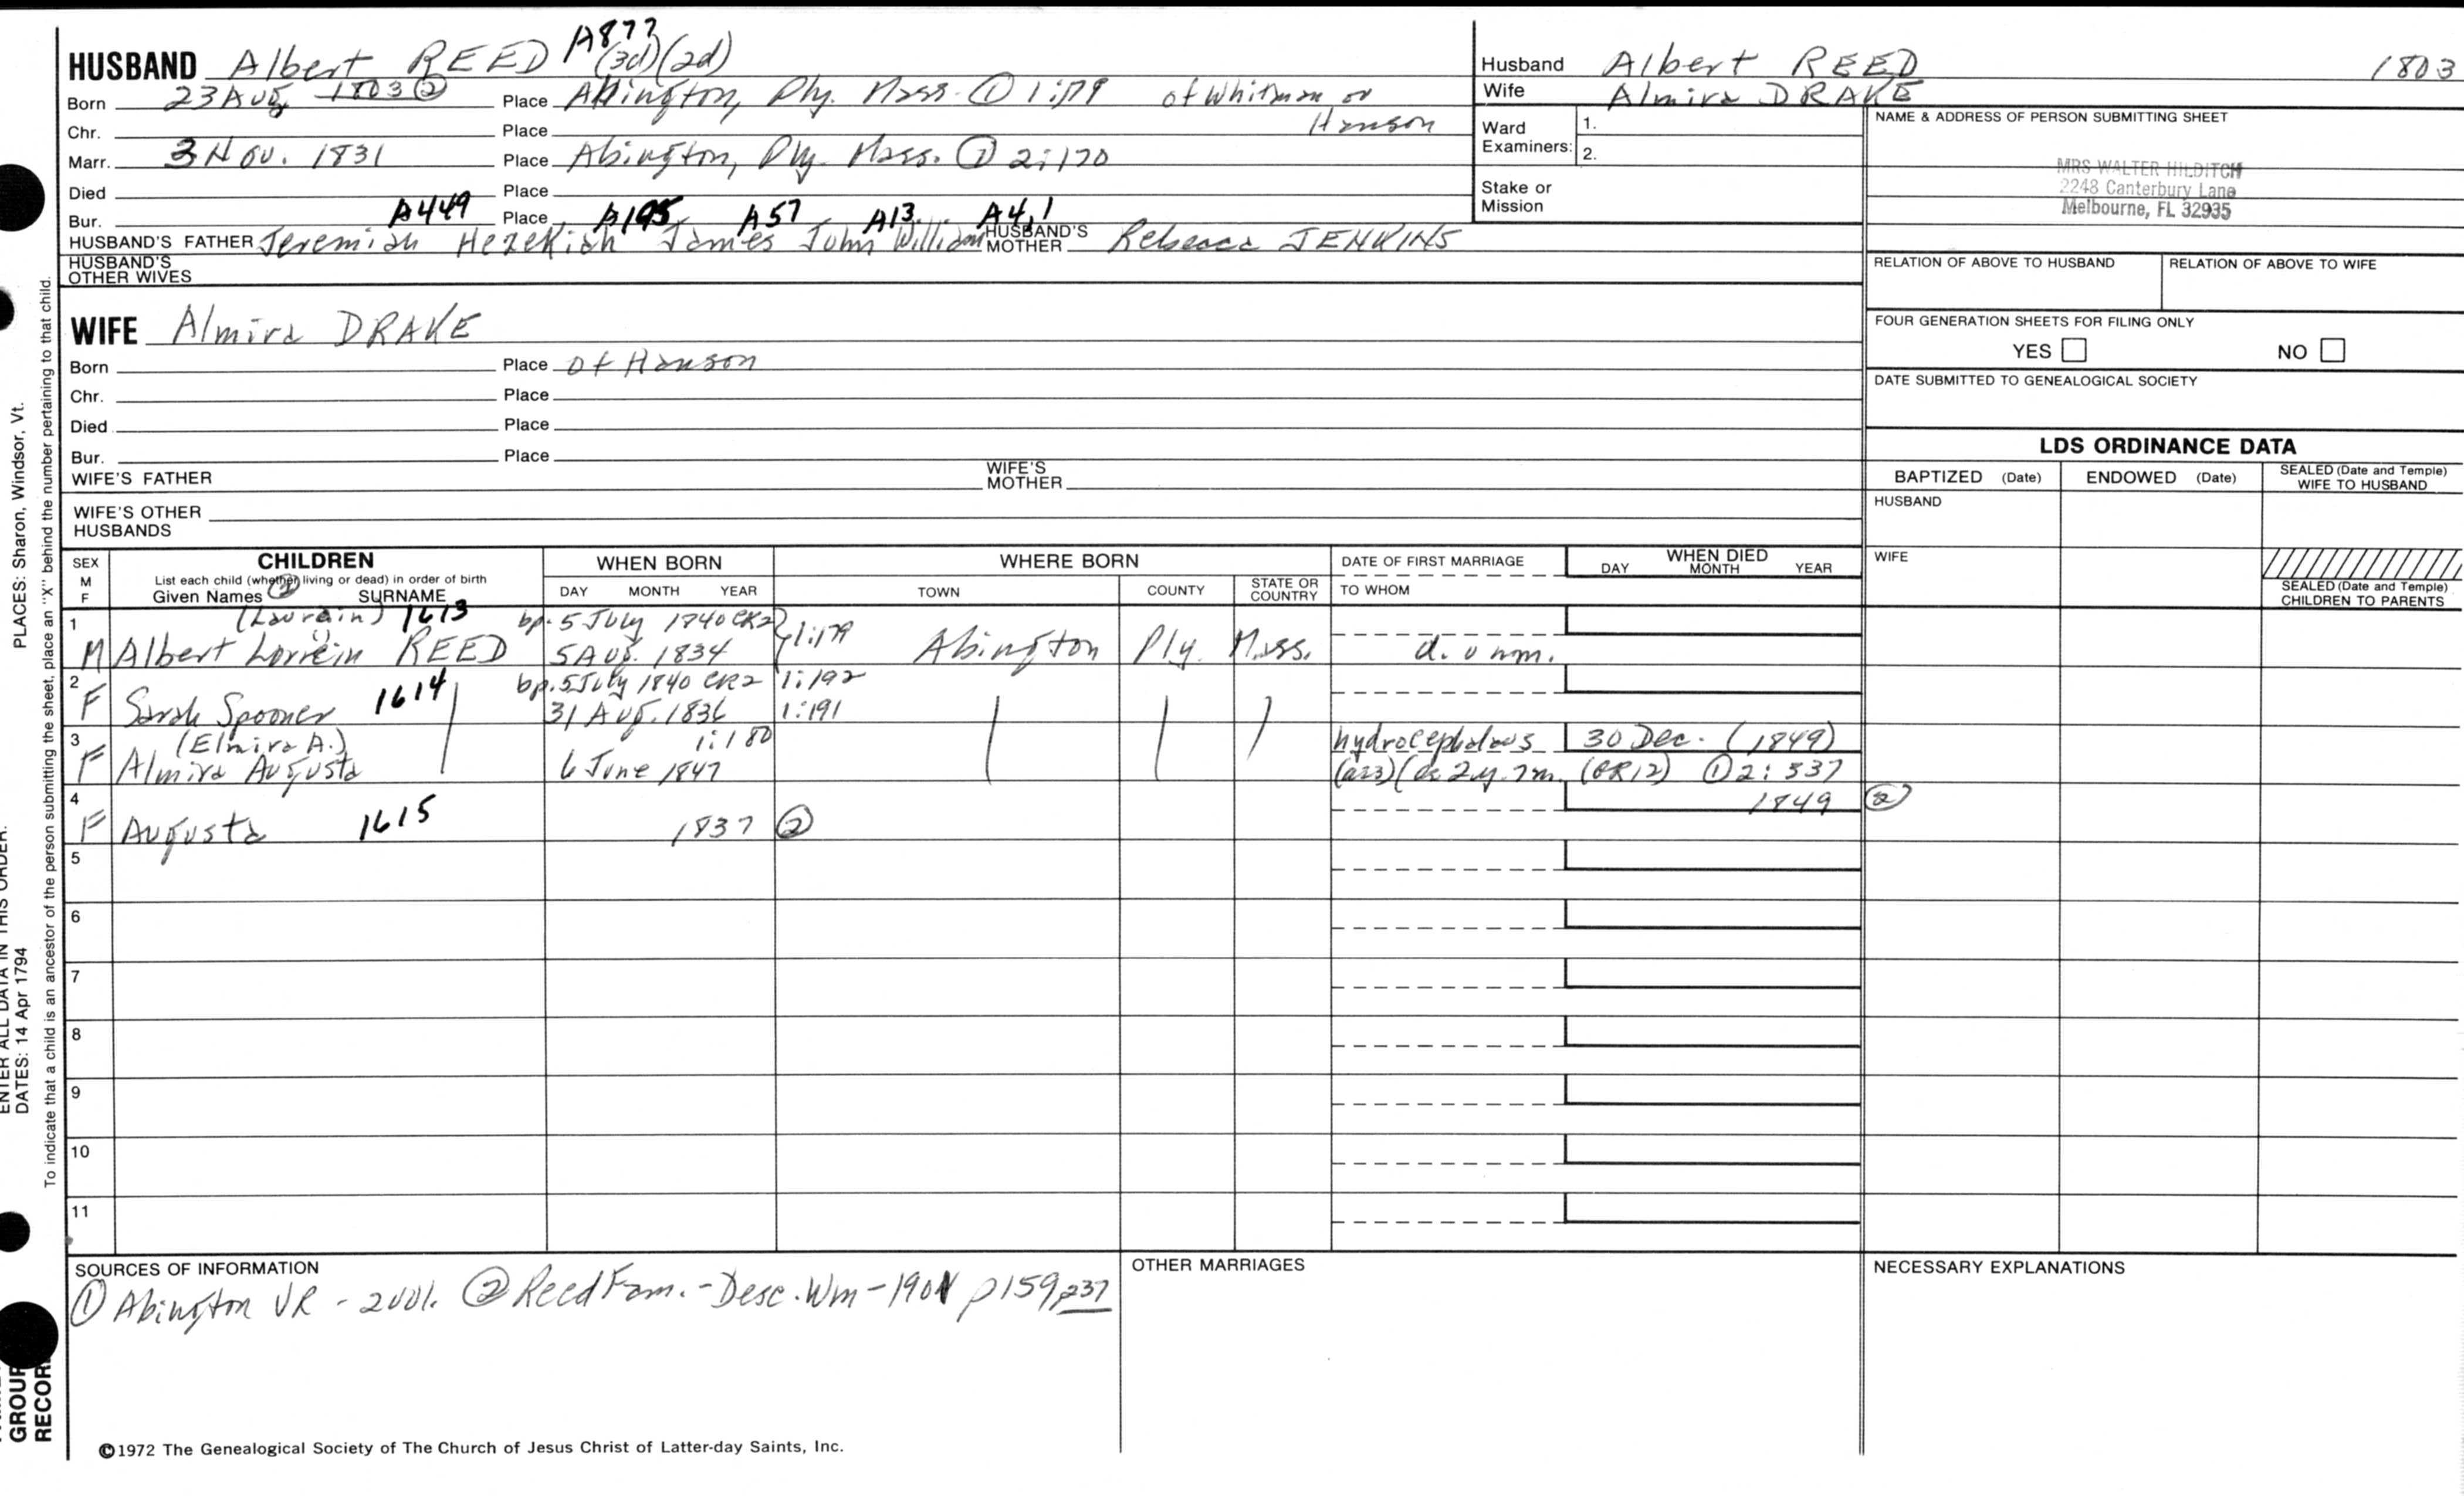 A877
HUSBAND Albert REED (3d)(2d)
Born 23 Aug 1803 ② Place Abington, Ply. Mass. ① 1:179 of Whitman or
Chr. Place Hanson
Marr. 3 Nov. 1831 Place Abington, Ply. Mass. ① 2:170
Died Place
Bur. A449 Place A195 A57 A13 A4,1
HUSBAND'S FATHER Jeremiah Hezekiah James John William HUSBAND'S MOTHER Rebecca JENKINS
HUSBAND'S OTHER WIVES
Husband Albert REED 1803
Wife Almira DRAKE
Ward Examiners: 1. 2.
Stake or Mission
NAME & ADDRESS OF PERSON SUBMITTING SHEET
MRS WALTER HILDITCH
2248 Canterbury Lane
Melbourne, FL 32935
RELATION OF ABOVE TO HUSBAND RELATION OF ABOVE TO WIFE
FOUR GENERATION SHEETS FOR FILING ONLY
YES NO
DATE SUBMITTED TO GENEALOGICAL SOCIETY
WIFE Almira DRAKE
Born Place of Hanson
Chr. Place
Died Place
Bur. Place
WIFE'S FATHER WIFE'S MOTHER
WIFE'S OTHER HUSBANDS
LDS ORDINANCE DATA
BAPTIZED (Date) ENDOWED (Date) SEALED (Date and Temple) WIFE TO HUSBAND
HUSBAND
WIFE
SEALED (Date and Temple) CHILDREN TO PARENTS
SEX M F CHILDREN WHEN BORN WHERE BORN DATE OF FIRST MARRIAGE WHEN DIED
List each child (whether living or dead) in order of birth
Given Names ② SURNAME DAY MONTH YEAR TOWN COUNTY STATE OR COUNTRY TO WHOM DAY MONTH YEAR
1 (Laurain) 1613 bp. 5 July 1840 CR2
M Albert Lorrein REED 5 Aug. 1834 1:179 Abington Ply. Mass. d. unm.
2 1614 bp. 5 July 1840 CR2 1:192
F Sarah Spooner 31 Aug. 1836 1:191
3 (Elmira A.) 1:180 hydrocephalous 30 Dec. (1849)
F Almira Augusta 6 June 1847 (a 2y. 7m. (CR12) ① 2:337
4 1849 ②
F Augusta 1615 1837 ②
5
6
7
8
9
10
11
SOURCES OF INFORMATION
① Abington VR - 2 vol. ② Reed Fam. - Desc. Wm - 1901 p159, 237
OTHER MARRIAGES
NECESSARY EXPLANATIONS
©1972 The Genealogical Society of The Church of Jesus Christ of Latter-day Saints, Inc.
To indicate that a child is an ancestor of the person submitting the sheet, place an "X" behind the number pertaining to that child.
ENTER ALL DATA IN THIS ORDER:
DATES: 14 Apr 1794 PLACES: Sharon, Windsor, Vt.
GROUP
RECOR